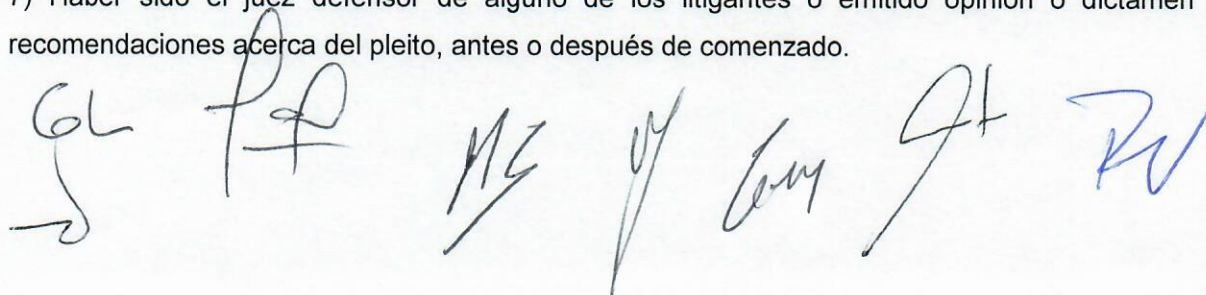 7) Haber sido el juez defensor de alguno de los litigantes o emitido opinión o dictamen
recomendaciones acerca del pleito, antes o después de comenzado.